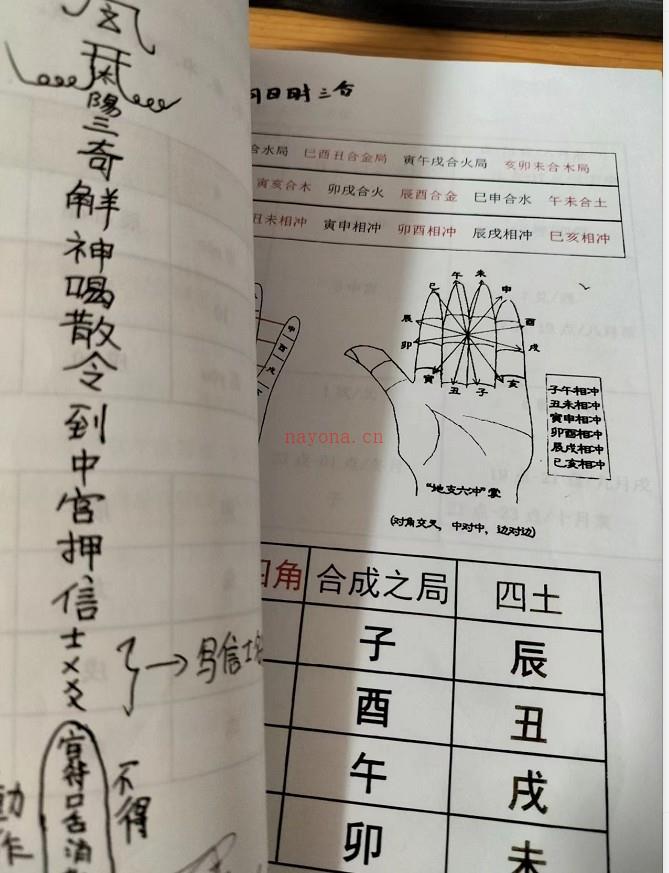 陽
三奇解神喝散令到中宫押信士××
写信士
官符口舌消
不得
动作
日时三合
合水局 巳酉丑合金局 寅午戌合火局 亥卯未合木局
寅亥合木 卯戌合火 辰酉合金 巳申合水 午未合土
丑未相冲 寅申相冲 卯酉相冲 辰戌相冲 巳亥相冲
申
酉
戌
午 未
巳 申
辰 酉
卯 戌
寅 丑 子 亥
子午相冲
丑未相冲
寅申相冲
卯酉相冲
辰戌相冲
巳亥相冲
"地支六冲"掌
(对角交叉, 中对中, 边对边)
nayona.cn
四角 合成之局 四土
子 辰
酉 丑
午 戌
卯 未